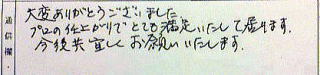 通信欄
大変ありがとうございました
プロの仕上がりでとても満足いたして居ります。
今後共宜しくお願いいたします。